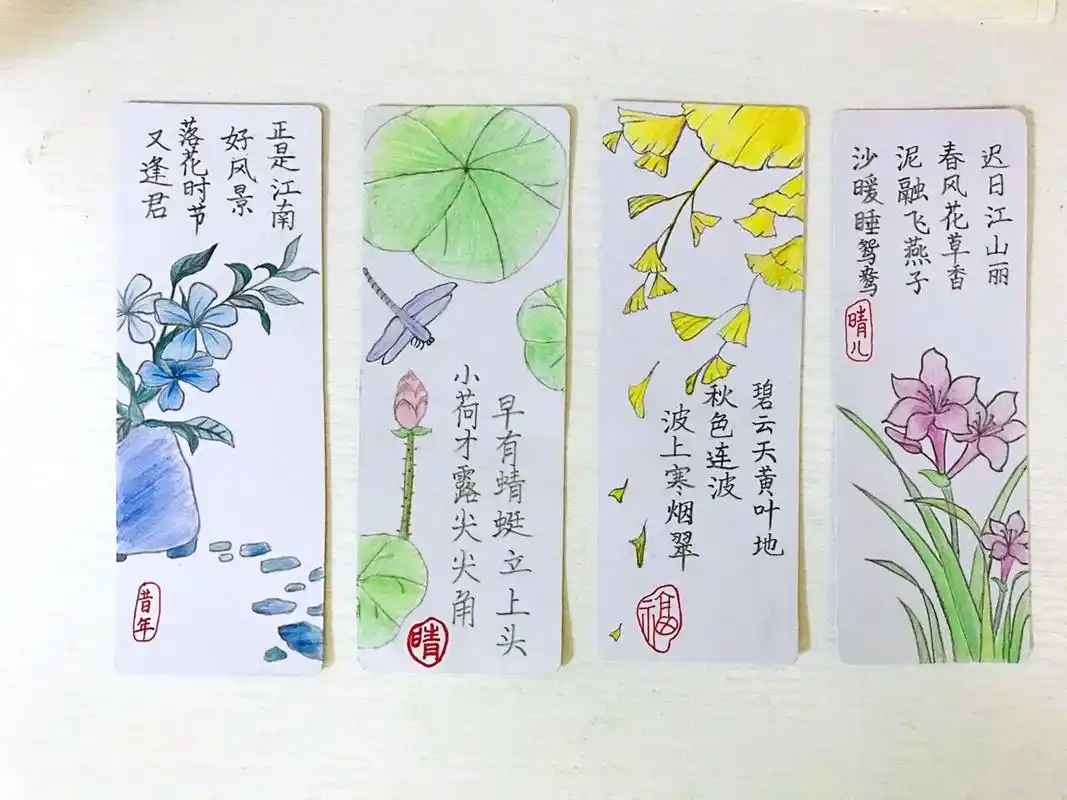 正是江南
好风景
落花时节
又逢君
昔年
小荷才露尖尖角
早有蜻蜓立上头
晴
碧云天黄叶地
秋色连波
波上寒烟翠
福
迟日江山丽
春风花草香
泥融飞燕子
沙暖睡鸳鸯
晴儿